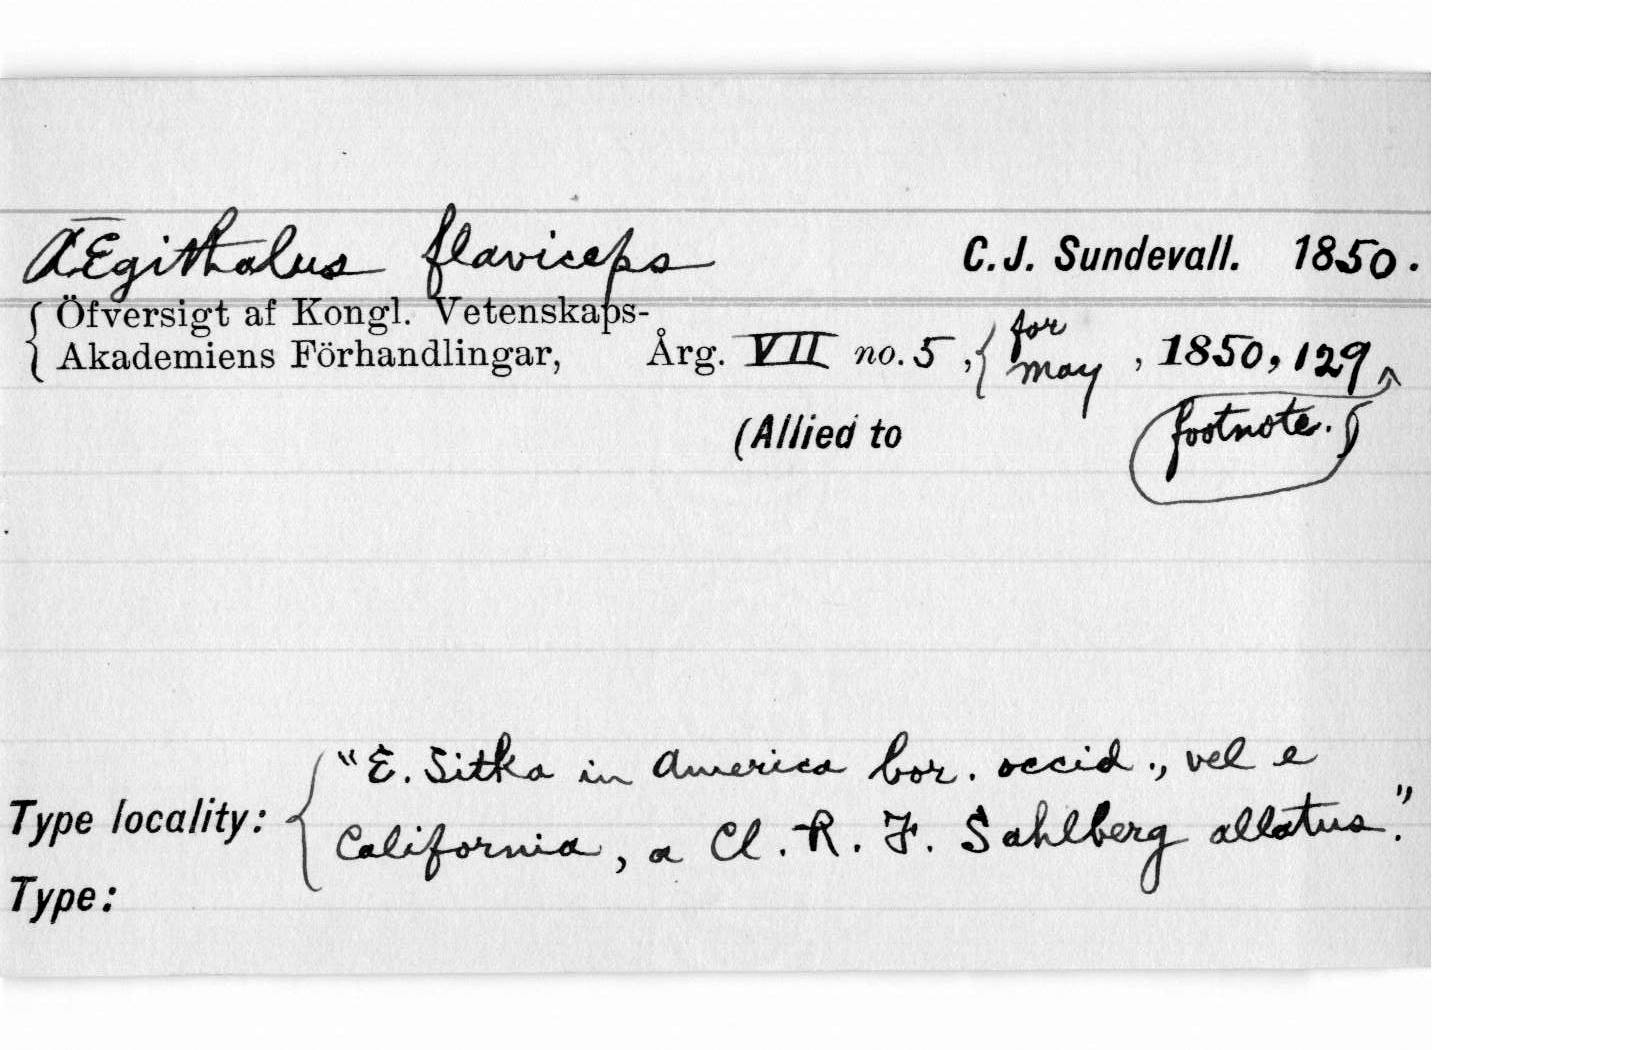 Ægithalus flaviceps C. J. Sundevall. 1850.
Öfversigt af Kongl. Vetenskaps-
Akademiens Förhandlingar, Årg. VII no. 5, for May, 1850, 129
(Allied to footnote.)
Type locality: "E. Sitka in America bor. occid., vel e
California, a Cl. R. F. Sahlberg allatus."
Type: